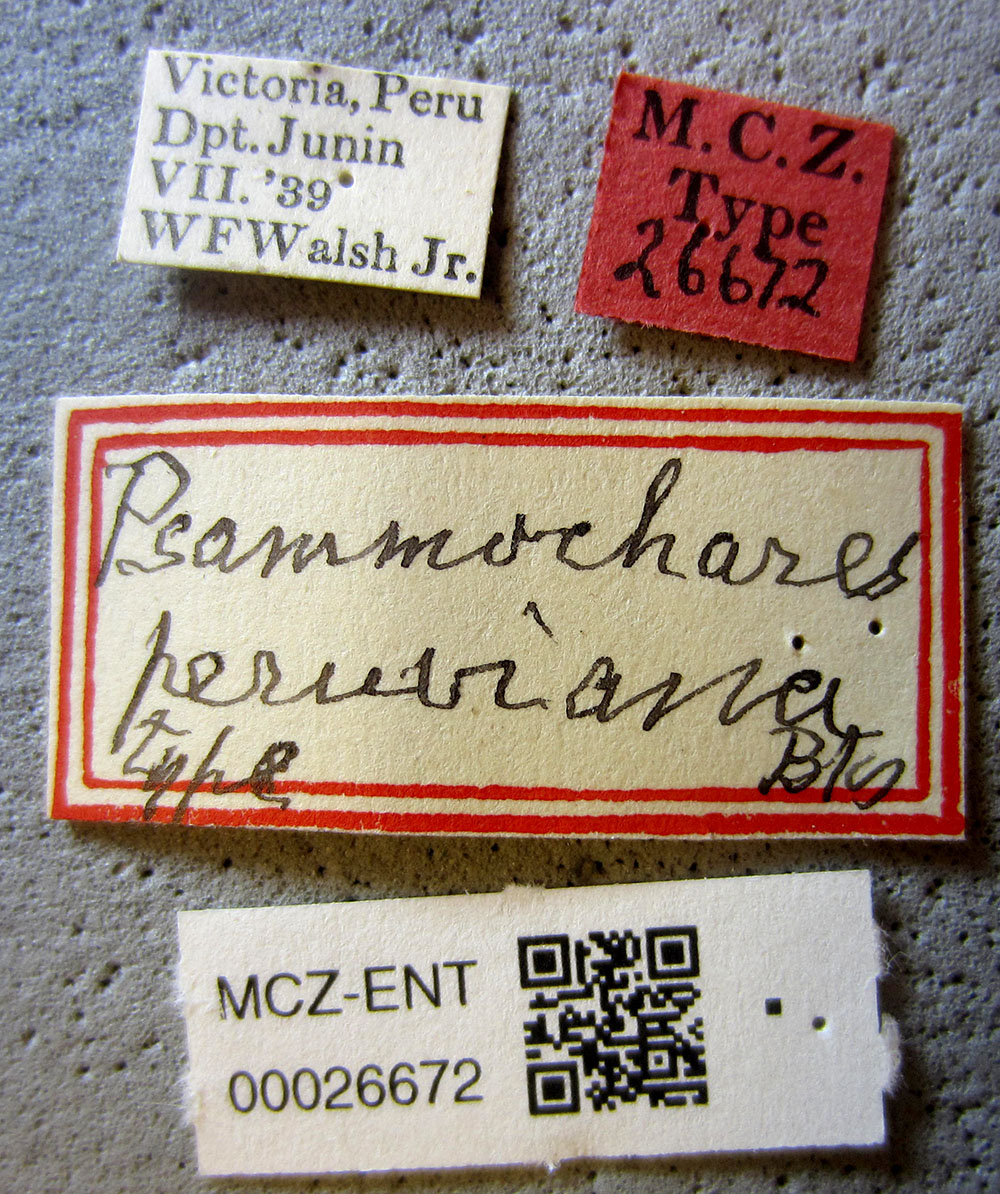 Victoria, Peru
Dpt. Junin
VII. '39
WFWalsh Jr.
M.C.Z.
Type
26672
Psammochares
peruviana
type Bks
MCZ-ENT
00026672